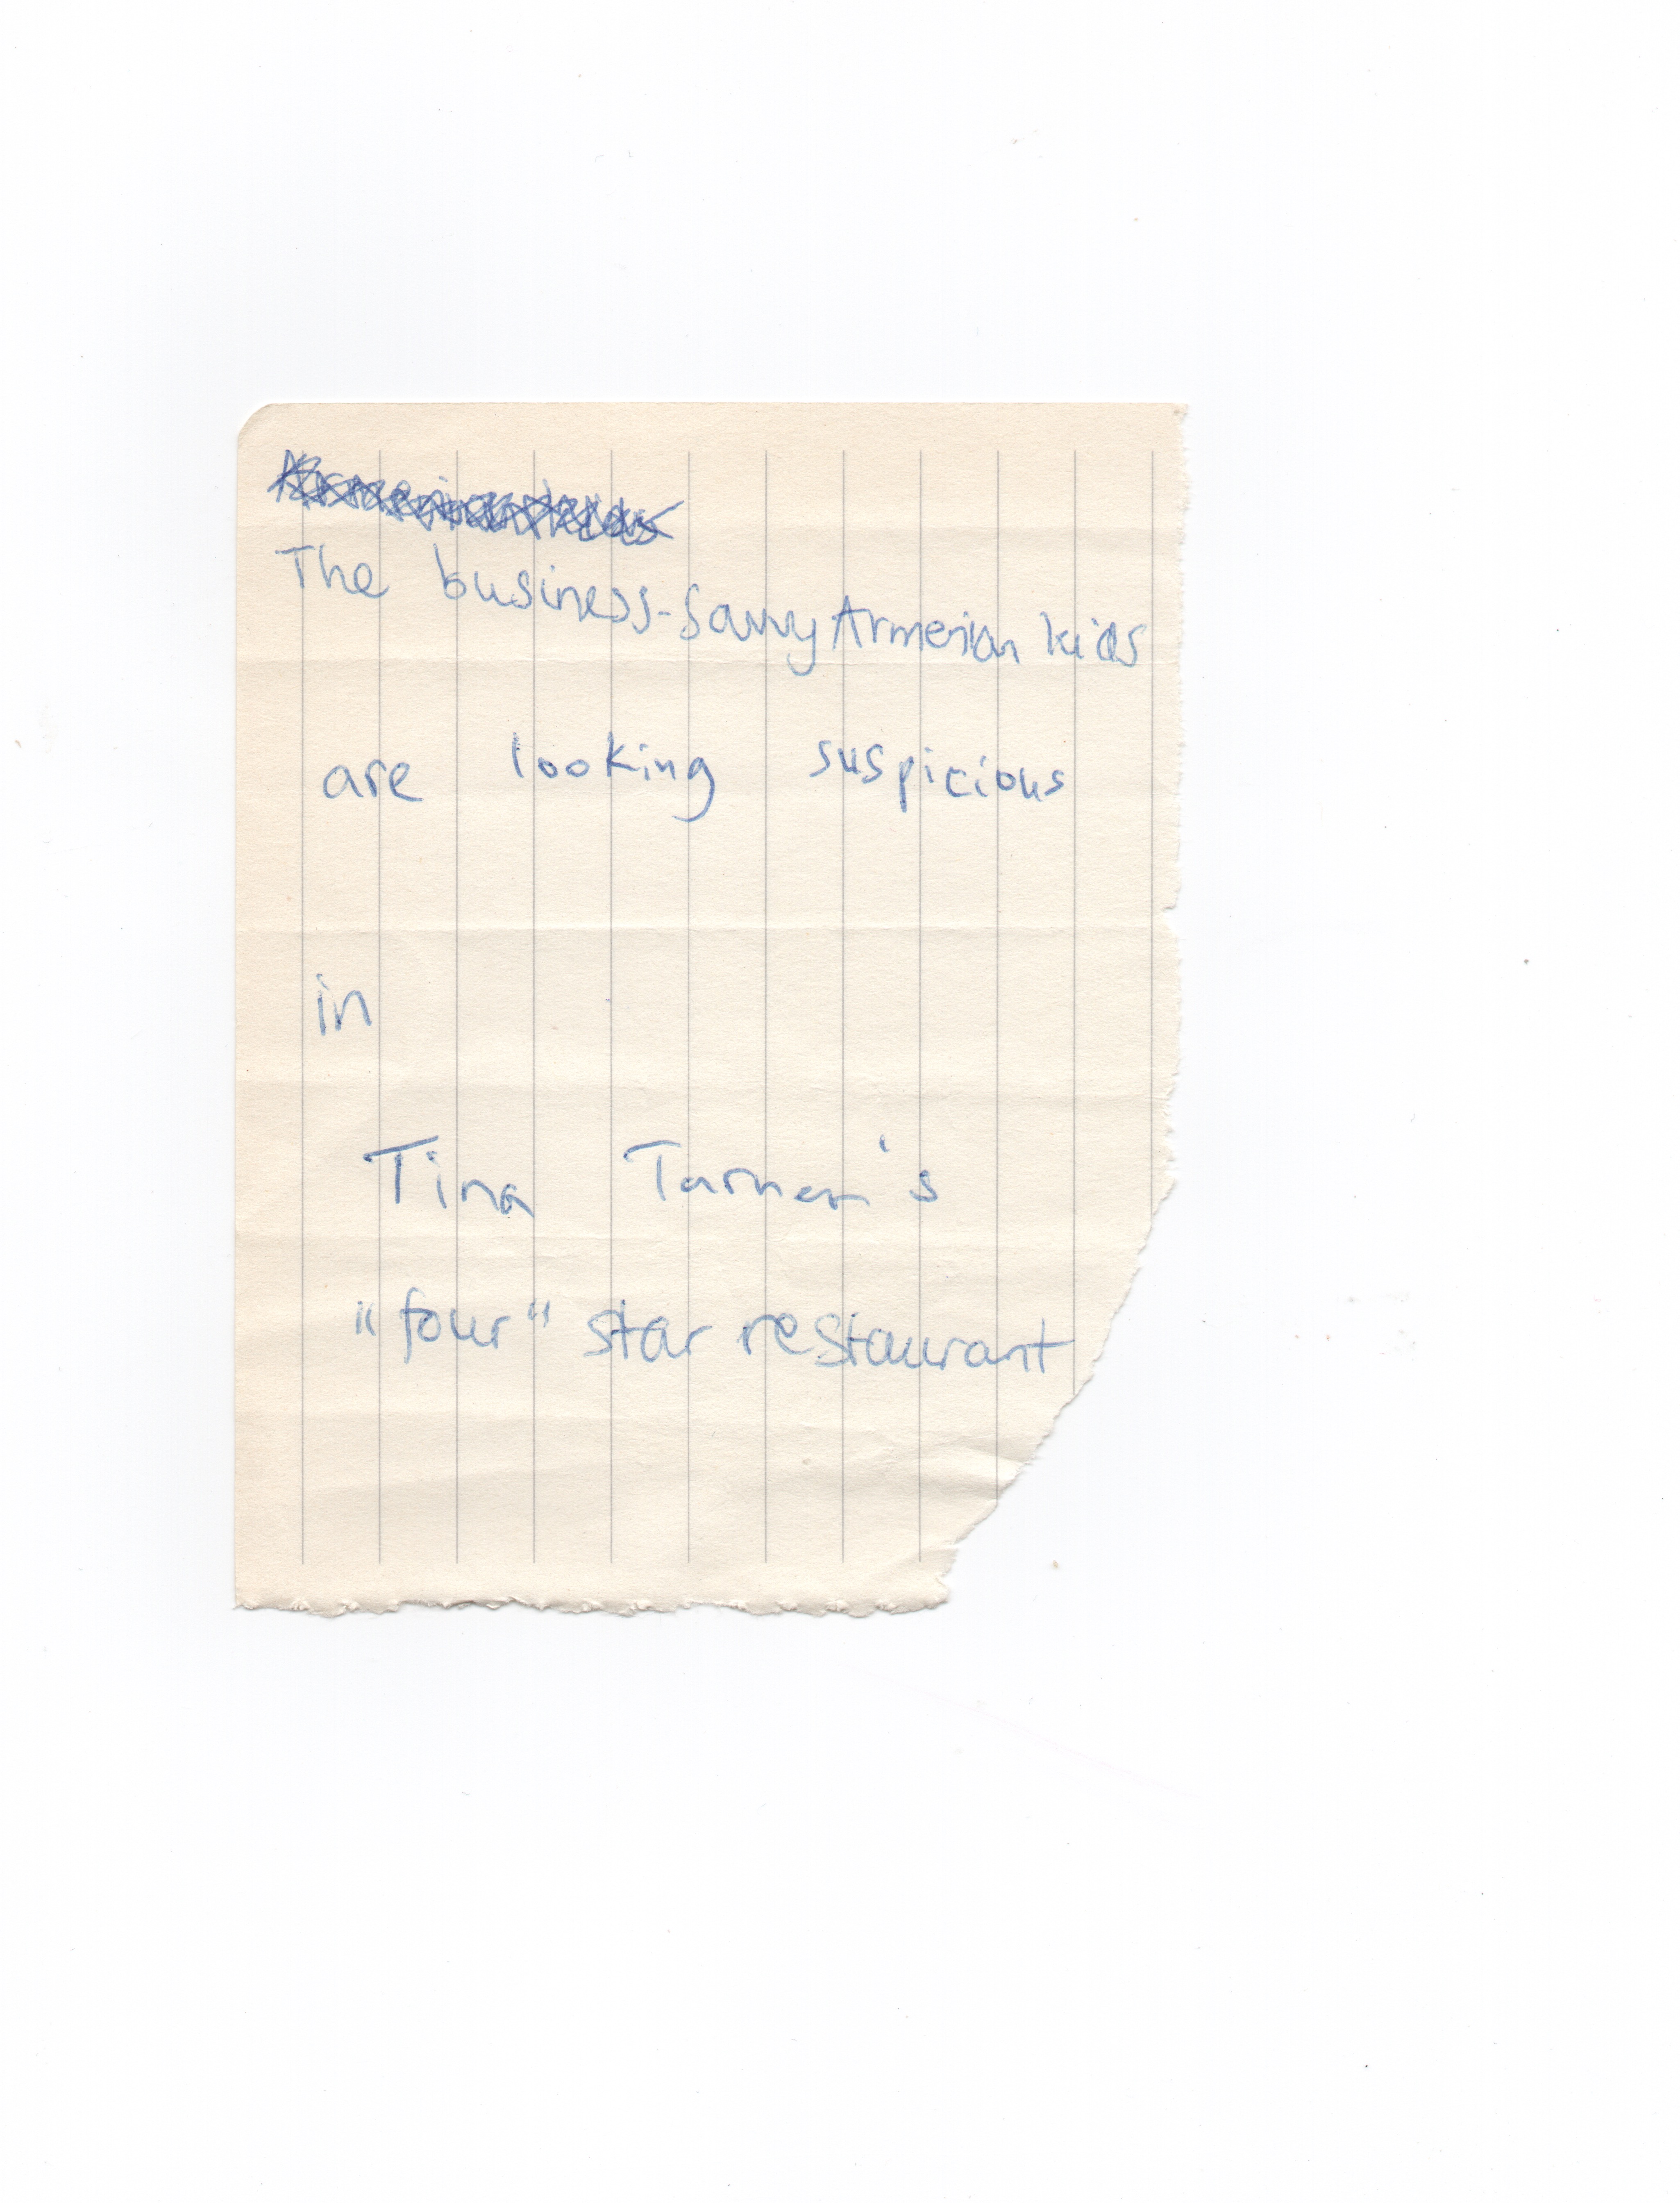 The business-savvy Armenian kids
are looking suspicious
in
Tina Tarner's
"four" star restaurant